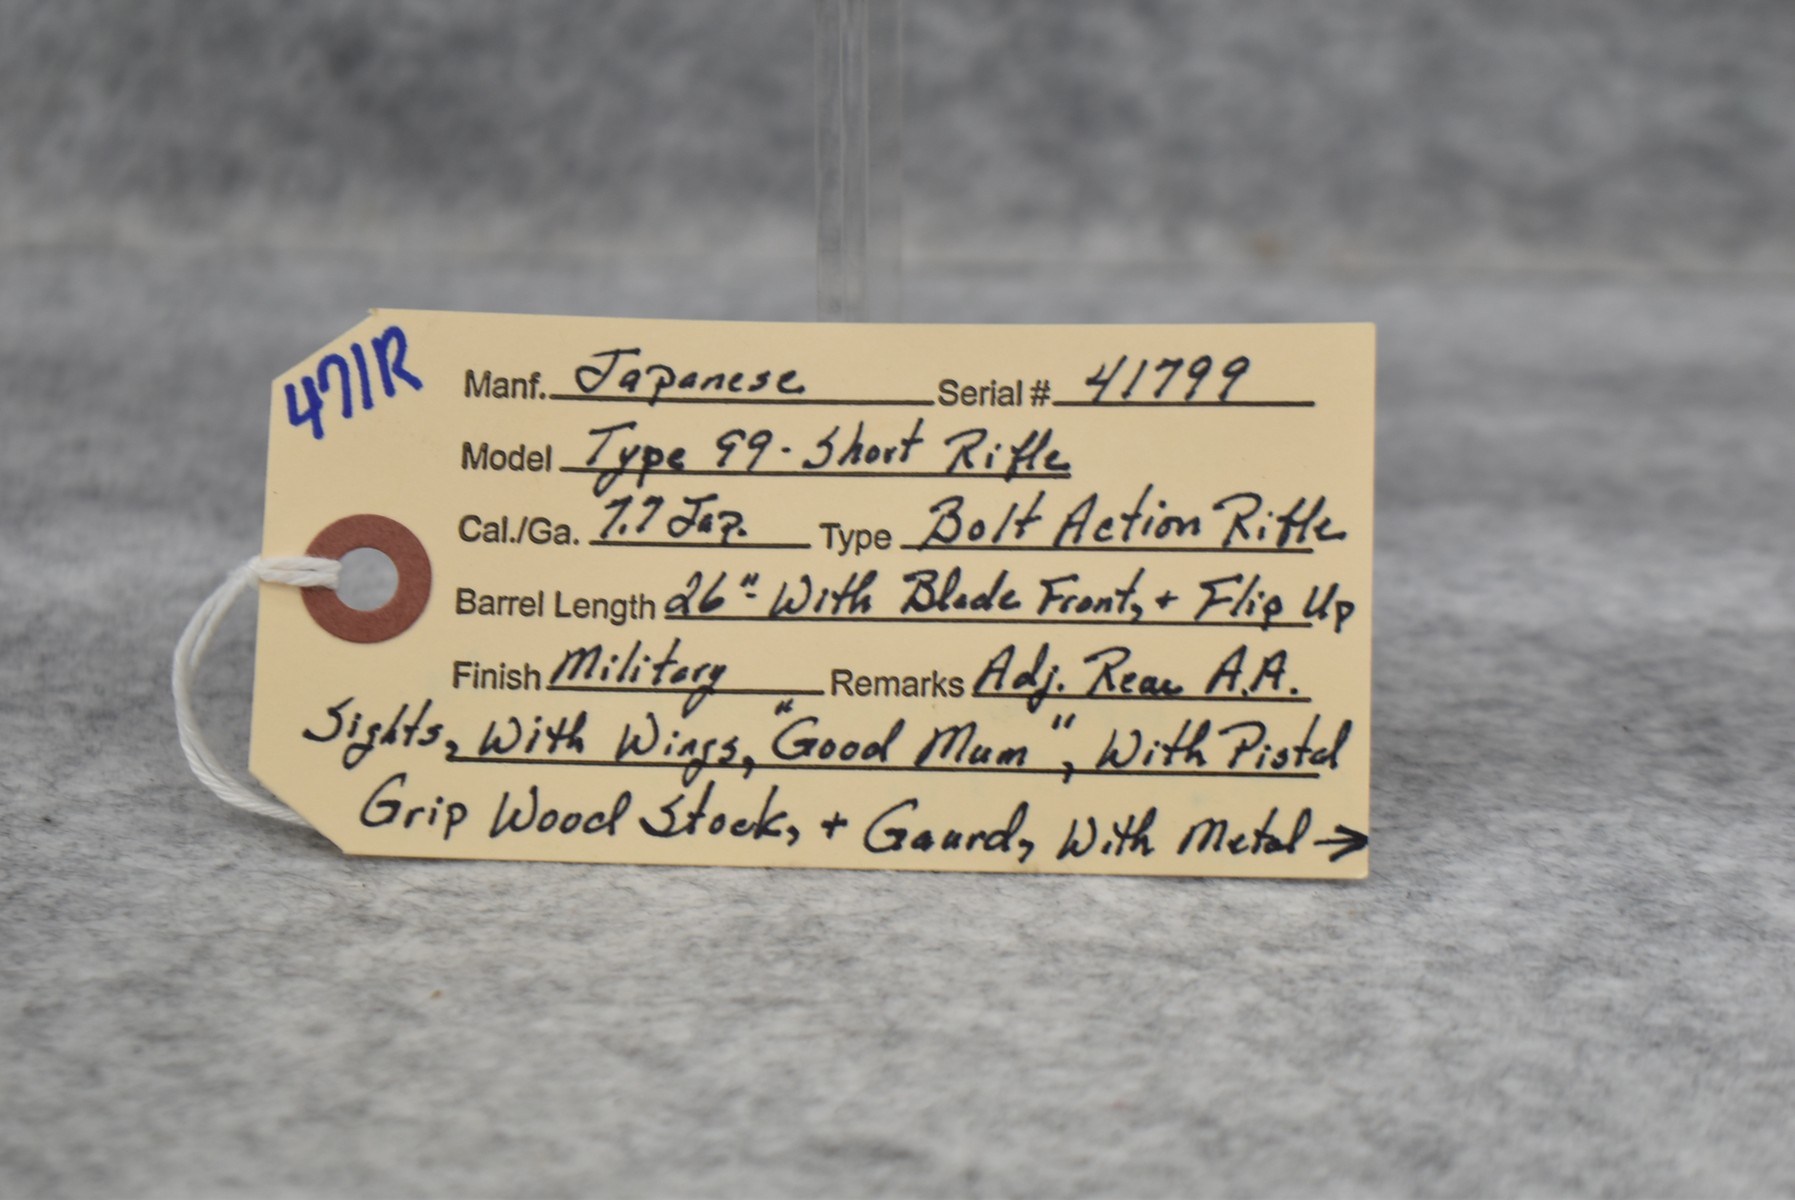 471R
Manf. Japanese Serial # 41799
Model Type 99 - Short Rifle
Cal./Ga. 7.7 Jap. Type Bolt Action Rifle
Barrel Length 26" - With Blade Front, + Flip Up
Finish Military Remarks Adj. Rear A.A.
Sights, With Wings, "Good Mum", With Pistol
Grip Wood Stock, + Gaurd, With Metal →